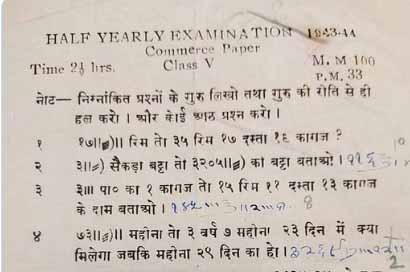 HALF YEARLY EXAMINATION 1943-44
Commerce Paper
Time 2½ hrs. Class V M. M 100
P.M. 33
नोट— निम्नांकित प्रश्नों के गुरु लिखो तथा गुरु की रीति से ही
हल करो । और कोई आठ प्रश्न करो ।
१ १७॥=)॥ रिम तो ३५ रिम १७ दस्ता १६ कागज ?
२ ३॥=) सैकड़ा बट्टा तो ३२०५॥=) का बट्टा बताओ ।
३ ३॥। पा० का १ कागज तो १५ रिम ११ दस्ता १३ कागज
के दाम बताओ । 8
४ ७३॥=)॥ महीना तो ३ वर्ष ७ महीना २३ दिन में क्या
मिलेगा जबकि महीना २९ दिन का हो ।
2